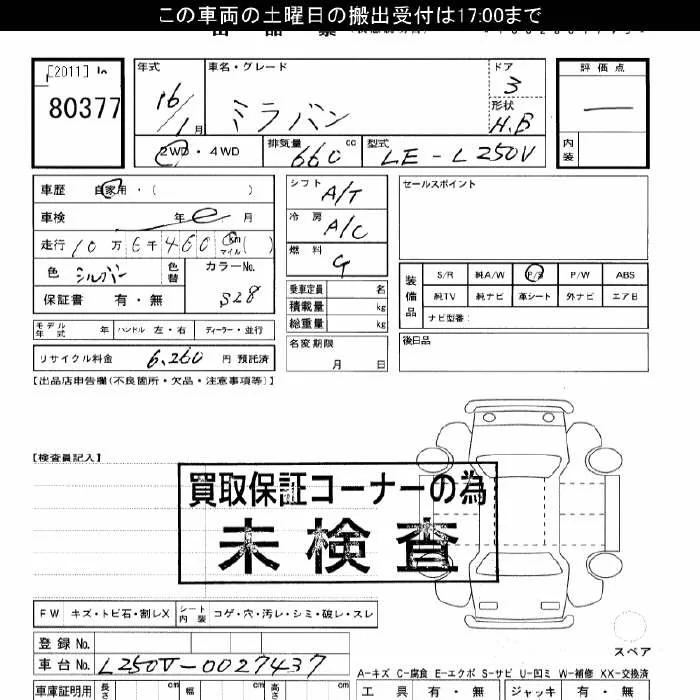 この車両の土曜日の搬出受付は17:00まで
[2011] In
80377
年式 車名・グレード ドア 評価点
16/1月 ミラバン 3
形状 H.B
2WD・4WD 排気量 660 cc 型式 LE-L250V
内装
車歴 自家用・( )
車検 年 月
走行 10万6千460 km マイル( )
色 シルバー 色替 カラーNo. S28
保証書 有・無
シフト A/T
冷房 A/C
燃料 G
乗車定員 名
積載量 kg
総重量 kg
セールスポイント
装備品 S/R 純A/W P/S P/W ABS
純TV 純ナビ 革シート 外ナビ エアB
ナビ型番:
モデル年式 年 ハンドル 左・右 ディーラー・並行
名変期限 月 日
後日品
リサイクル料金 6,260 円 預託済
【出品店申告欄(不良箇所・欠品・注意事項等)】
【検査員記入】
買取保証コーナーの為
未検査
FW キズ・トビ石・割レX シート内装 コゲ・穴・汚レ・シミ・破レ・スレ
登録No.
車台No. L250V-0027437
スペア
A-キズ C-腐食 E-エクボ S-サビ U-凹ミ W-補修 XX-交換済
車庫証明用 長さ cm 幅 cm 高さ cm
工具 有・無 ジャッキ 有・無